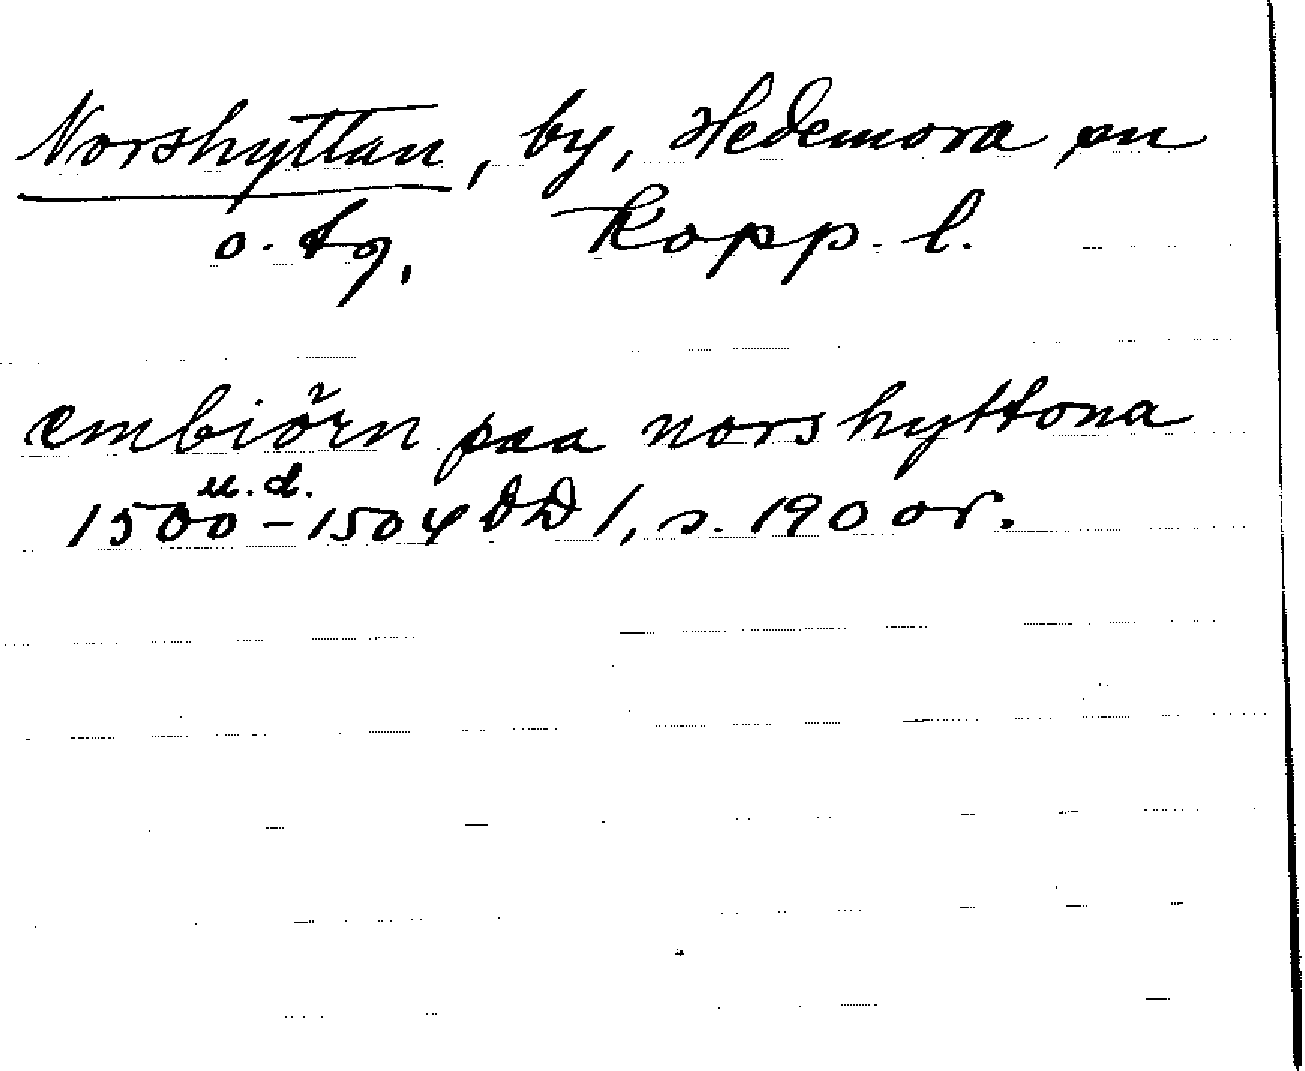 Norshyttan, by, Hedemora sn
o. tg, Kopp. l.
embiörn paa norshyttona
u.d.
1500-1504 DD 1, s. 190 or.